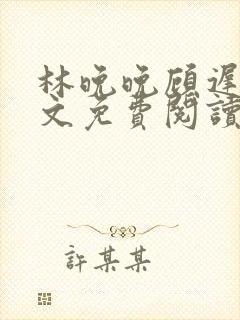 林晚晚顾遲
文免費閱讀
許某某